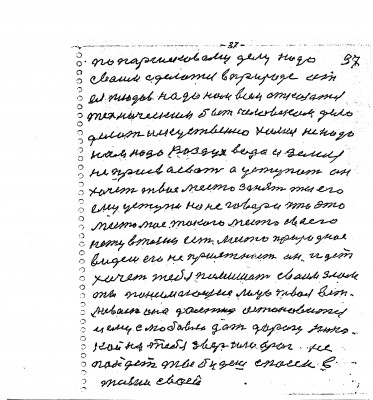 - 37 -
по паршиковому делу надо 37
своим сделоть в природе от
ея плодов надо нам всем отказатся
техническим быт человеком дело
делат искуственно холм не надо
нам надо воздух вода и земля
не присваеват а уступат он
хочет твое место занят ты его
ему уступи но не говари ты это
место мое такого место своего
нету в тебя ест место природное
видеш его не приятност он идет
хочет тебя помешат своим злом
ты понимающие лицо твоя веж
ливаи она должна остоновится
и ему с любовю дат дарогу нико
кой на тебя звер или враг не
пойдет ты будеш спасен в
жизни своей